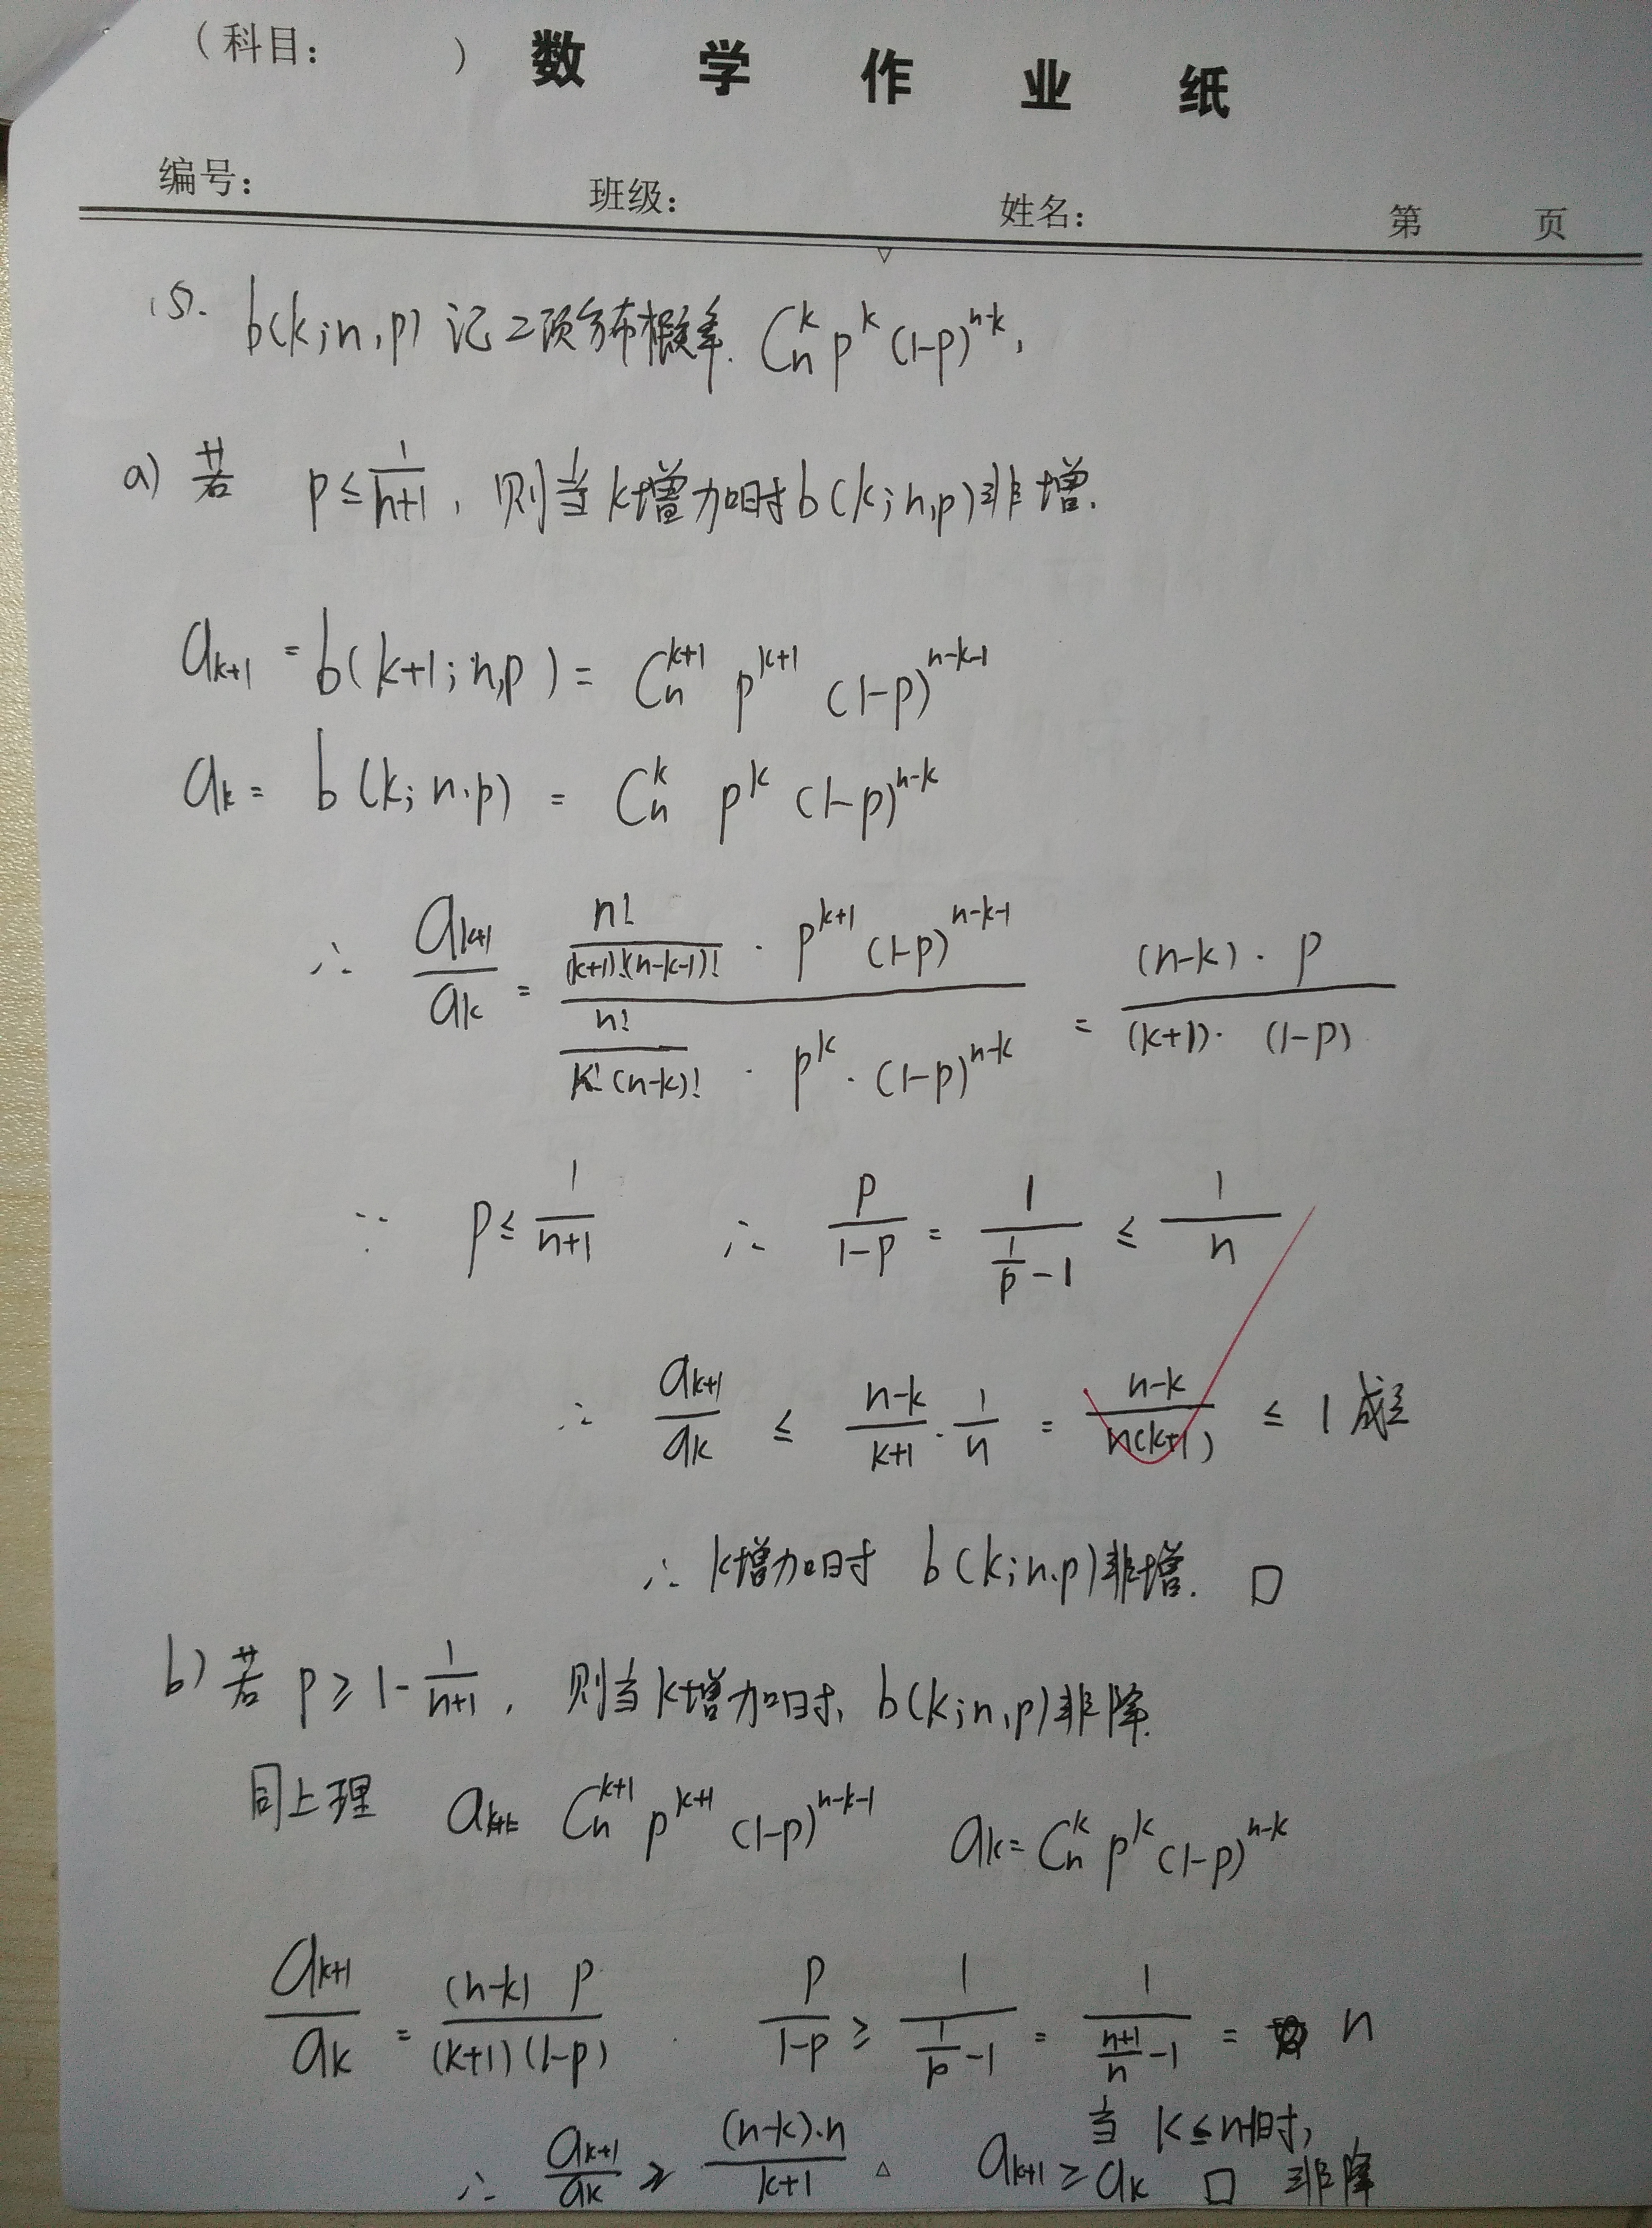 （科目： ） 数 学 作 业 纸
编号： 班级： 姓名： 第 页
15. b(k;n,p) 记二项分布概率. C_n^k p^k (1-p)^{n-k},
a) 若 p ≤ \frac{1}{n+1}, 则当k增加时b(k;n,p)非增.
a_{k+1} = b(k+1;n,p) = C_n^{k+1} p^{k+1} (1-p)^{n-k-1}
a_k = b(k;n,p) = C_n^k p^k (1-p)^{n-k}
∴ \frac{a_{k+1}}{a_k} = \frac{\frac{n!}{(k+1)!(n-k-1)!} · p^{k+1} (1-p)^{n-k-1}}{\frac{n!}{k!(n-k)!} · p^k · (1-p)^{n-k}} = \frac{(n-k) · p}{(k+1) · (1-p)}
∵ p ≤ \frac{1}{n+1} ∴ \frac{p}{1-p} = \frac{1}{\frac{1}{p}-1} ≤ \frac{1}{n}
∴ \frac{a_{k+1}}{a_k} ≤ \frac{n-k}{k+1} · \frac{1}{n} = \frac{n-k}{n(k+1)} ≤ 1 成立
∴ k增加时 b(k;n,p)非增. □
b) 若 p ≥ 1-\frac{1}{n+1}, 则当k增加时, b(k;n,p)非降.
同上理 a_{k+1} = C_n^{k+1} p^{k+1} (1-p)^{n-k-1} a_k = C_n^k p^k (1-p)^{n-k}
\frac{a_{k+1}}{a_k} = \frac{(n-k) p}{(k+1)(1-p)} . \frac{p}{1-p} ≥ \frac{1}{\frac{1}{p}-1} = \frac{1}{\frac{n+1}{n}-1} = n
∴ \frac{a_{k+1}}{a_k} ≥ \frac{(n-k)·n}{k+1} 当 k ≤ n-1时, a_{k+1} ≥ a_k □ 非降